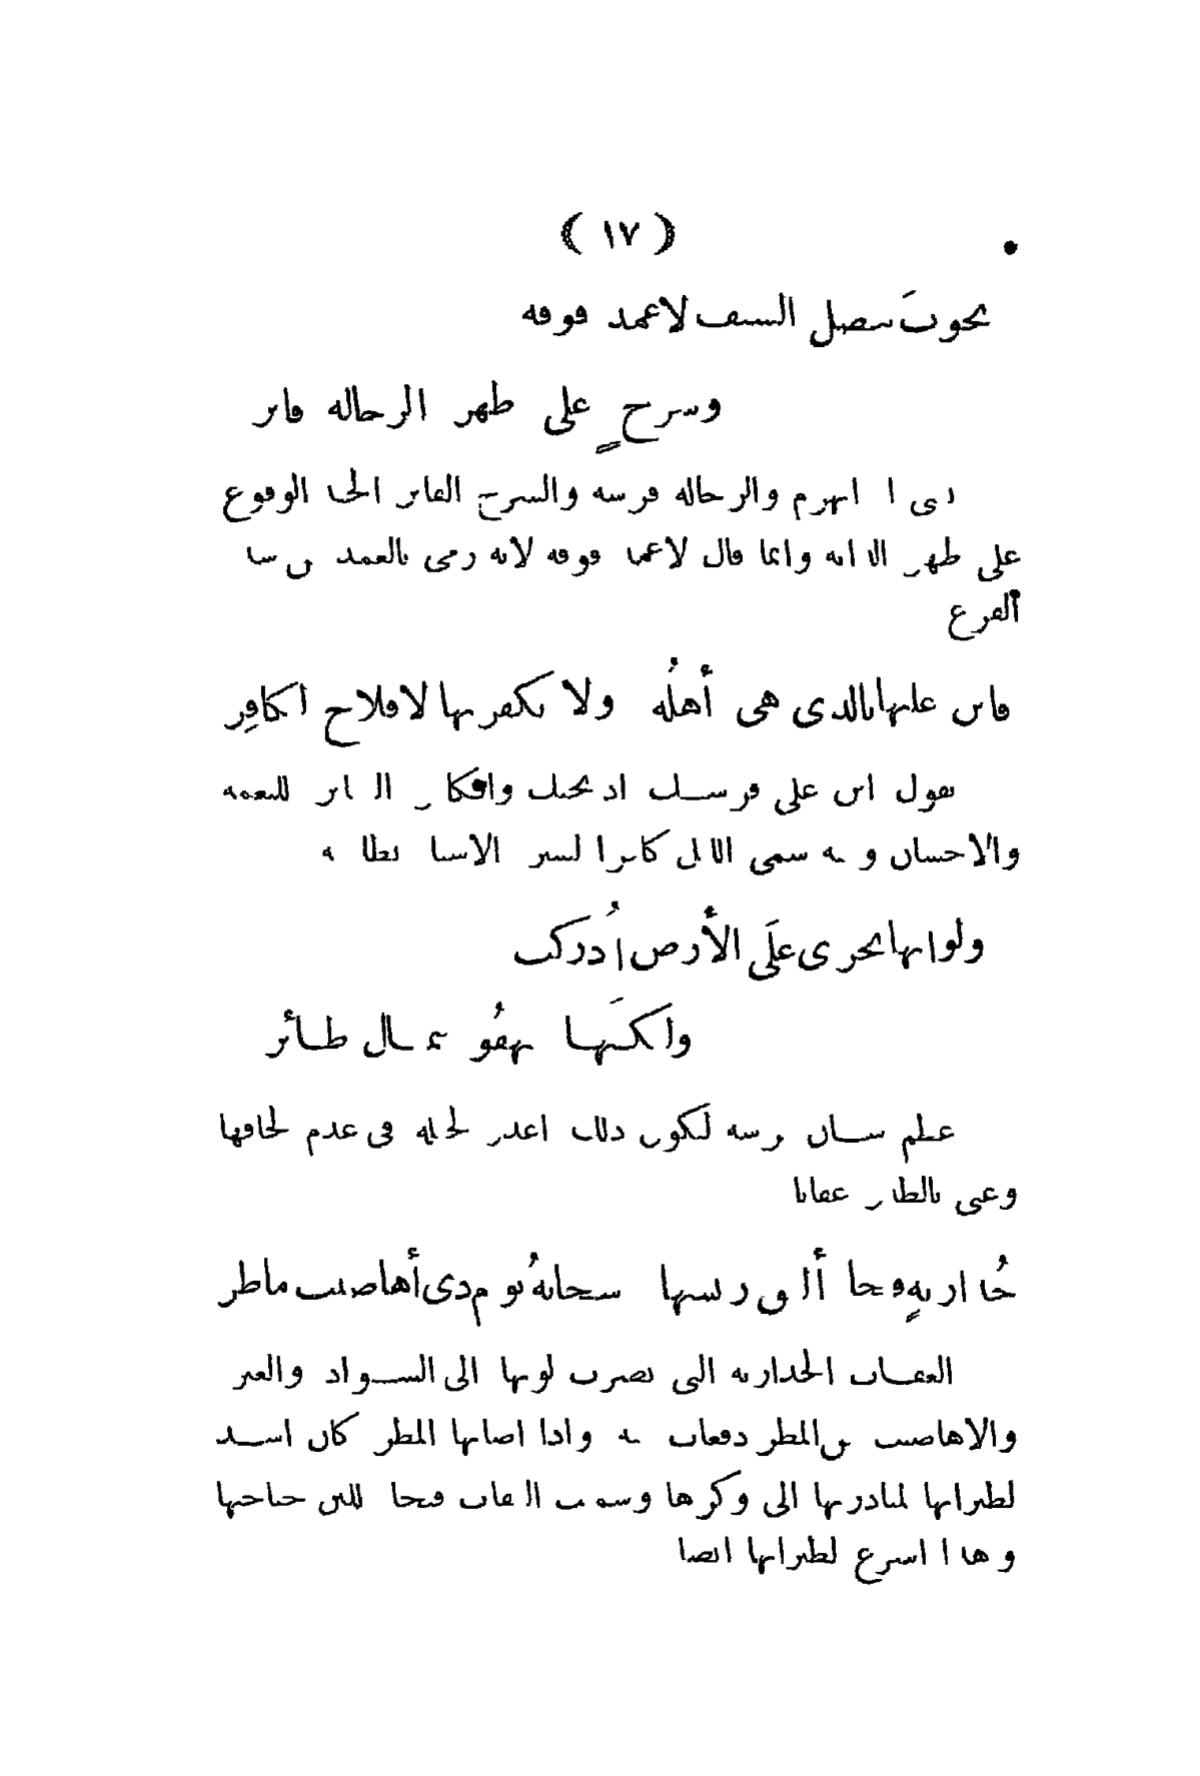 ( ١٧ )
نجوتَ بنصل السيف لا غمد فوقه
وسرجٍ على ظهر الرحالة قاتر
انهزم والرحالة فرسه والسرج القاتر الجيد الوقوع
على ظهر الدابة وانما قال لا غمد فوقه لانه رمى بالغمد من
الفزع
فاثن عليها بالذى هى أهلُه ولا تكفرنها لا فلاح لكافِر
يقول اثن على فرسك اذ نجتك والكافر الساتر للنعمة
والاحسان وبه سمى الليل كافرا لستره الاشياء بظلامه
ولو انها تجرى علَى الأرض أُدركت
ولكنَّها تهفُو بتمثال طائر
عظم شأن فرسه ليكون ذلك اعذر لخيله فى عدم لحاقها
وعنى بالطائر عقابا
خُداريةٍ فتخاء ألثق ريشها سحابةُ يوم ذى أهاضيب ماطر
العقاب الخدارية التى تضرب لونها الى السواد والغبرة
والاهاضيب من المطر دفعات منه واذا اصابها المطر كان اشد
لطيرانها لمبادرتها الى وكرها وسميت العقاب فتخاء للين جناحيها
وهذا اسرع لطيرانها ايضا